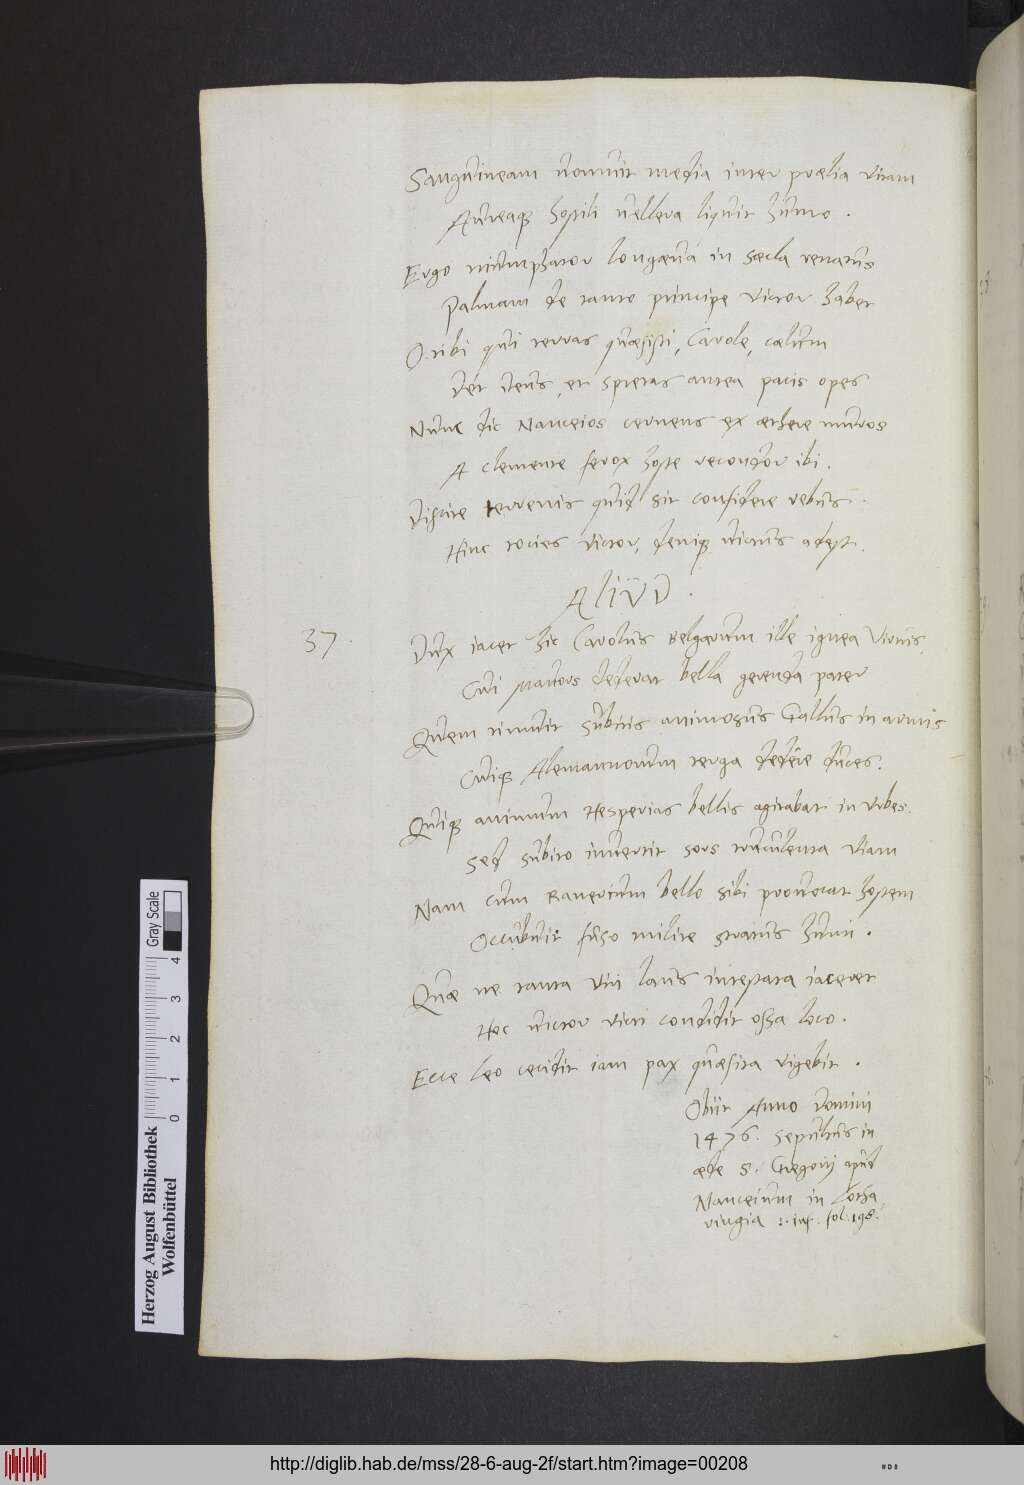 Sanguineam uomuit media inter prælia uitam
Aureaq; hostili uellera liquit humo.
Ergo triumphator longæua in sæcla renatus
Palmam de tanto principe Victor habet
O tibi qui terras quæsisti, Carole, cælum
Det Deus, et spretas antea pacis opes
Nunc dic Nanceios cernens ex æthere muros
A clemente ferox hoste recondor ibi.
Discite terrenis quid sit confidere rebus.
Hinc toties Victor, deniq; uictus adest.
ALIUD.
37.
Dux iacet hic Carolus Belgarum ille ignea Virtus,
Cui Mauors dederat bella gerenda pater
Quem timuit subitis animosus Gallus in armis
Cuiq; Alemannorum terga dedere duces.
Quiq; animum Hesperias bellis agitabat in Vrbes.
Sed subito inuertit sors truculenta Viam
Nam cum Renerium bello sibi prouocat hostem
Occubuit fuso milite stratus humi.
Quæ ne tanta Viri laus intestata iaceret
Hoc uictor Victi condidit ossa loco.
Ecce leo cecidit iam pax quæsita Vigebit.
Obiit Anno Domini
1476. Sepultus in
æde S. Gregorij apud
Nanceium in Lotha
ringia :. inf. fol. 198.
Herzog August Bibliothek
Wolfenbüttel
Gray Scale
0 1 2 3 4
http://diglib.hab.de/mss/28-6-aug-2f/start.htm?image=00208